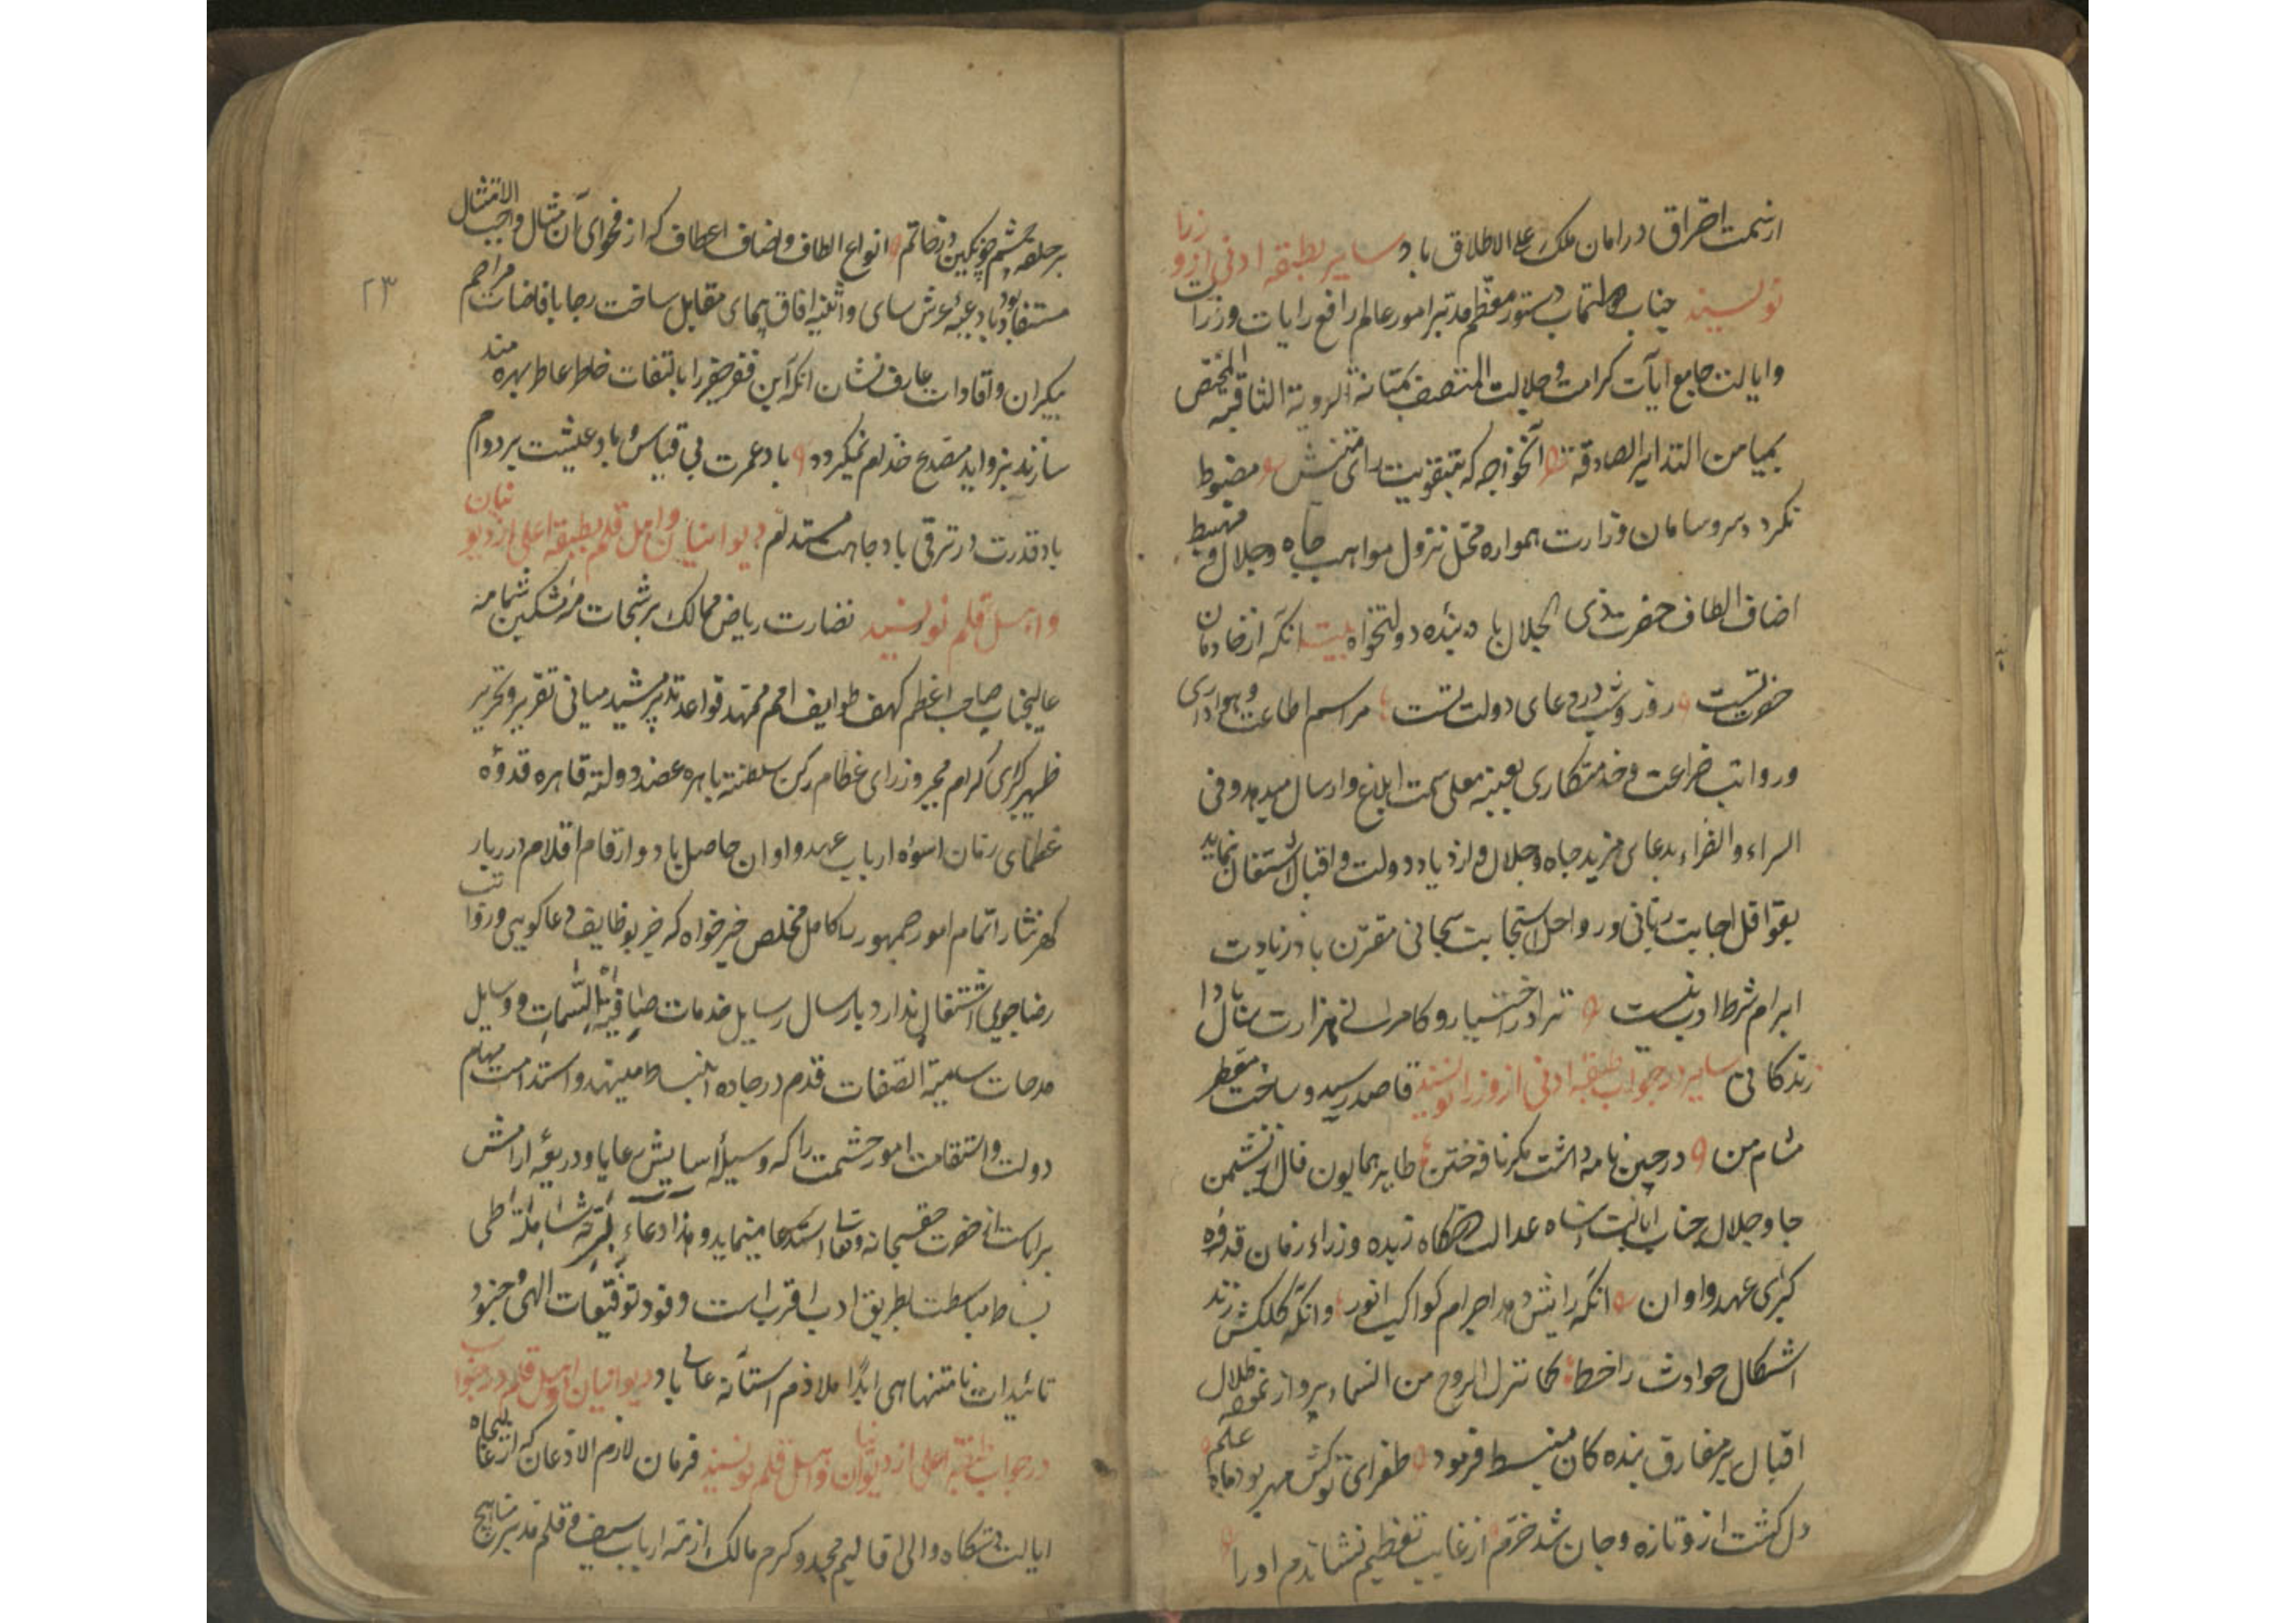 از سمت احراق در امان ملک علی الاطلاق باد سایر بطبقه ادنی از وزرا
نویسند جناب دستور معظم مدبر امور عالم رافع رایات وزارت
و ایالت جامع آیات کرامت و جلالت المتصف بمتانة الرویة الثاقبه المختص
بمیامن التدابیر الصادقه آنخواجه که بتقویت رای متینش مضبوط
نکرد سر و سامان وزارت همواره محل نزول مواهب جاه و جلال و مهبط
اضاف الطاف حضرت ذی الجلال باد بنده دولتخواه بیت انکه از خادمان
حضرت تست روز و شب در دعای دولت تست مراسم اطاعت و هواداری
و رواتب ضراعت و خدمتکاری بعتبه معلی سمت ابلاغ و ارسال میدهد و فی
السراء و الضراء بدعای مزید جاه و جلال و ازدیاد دولت و اقبال اشتغال نماید
بقوافل اجابت ربانی و رواحل استجابت سبحانی مقترن باد زیادت
ابرام شرط ادب نیست ترا در اختیار و کامرانی هزارت سال بادا
زندکانی سایر در جواب طبقه ادنی از وزرا نویسند قاصد رسید و ساخت معطر
مشام من در چین نامه داشت مکر نافه ختن طایر همایون فال از نشیمن
جاه و جلال جناب ایالت پناه عدالت دستکاه زبده وزراء زمان قدوه
کبرای عهد و اوان انکه رایش دهد اجرام کواکب انور وانکه کلکش زند
اشکال حوادث را خط کما تنزل الروح من السماء پرواز نموده ظلال
اقبال بر مفارق بنده کان منبسط فرمود طغرای نوکش مهر بود ماه علم
دل کشت ازو تازه و جان شد خرم از غایت تعظیم نشاندم او را
بر حلقه چشم چو نکین در خاتم انواع الطاف و اضاف اعطاف که از فحوای آن مثال واجب الامتثال
مستفاد بود بادعیه عرش سای و اثنیه افاق پیمای مقابل ساخت رجا بافاضات مراحم
بیکران و افادات عارف نشان انکه این فقیر حقیر را بالتفات خاطر عاطر بهره مند
سازند بزواید مصدع خدام نمیکردد باد عمرت بی قیاس و باد عیشت بر دوام
باد قدرت در ترقی باد جاهت مستدام دیوانیان و اهل قلم بطبقه اعلی از دیوانیان
و اهل قلم نویسند نضارت ریاض ممالک برشحات مشکین شمامه
عالیجناب صاحب اعظم کهف طوایف امم ممهد قواعد تدبیر مشید مبانی تقریر و تحریر
ظهیر کبرای کرام مجیر وزرای عظام رکن سلطنة باهره عضد دولة قاهره قدوه
عظمای زمان اسوه ارباب عهد و اوان حاصل باد و ارقام اقلام دربار
کهر نثار اتمام امور جمهور را کامل مخلص خیرخواه که جز بوظایف دعاکویی و رواتب
رضاجویی اشتغال ندارد بارسال رسایل خدمات صافیة السمات و وسایل
مدحات سامیة الصفات قدم در جاده انبساط مینهد و استدامت مهام
دولت و استقامت امور حشمت را که وسیله اسایش رعایا و ذریعه ارامش
برایاست از حضرت حق سبحانه و تعالی استدعا مینماید و هذا دعاء للبریة شامل طی
بساط مباسطت بطریق ادب اقرب است وفود توفیقات الهی و جنود
تائیدات نامتناهی ابدا ملازم آستانه عالی باد دیوانیان و اهل قلم در جواب
در جواب طبقه اعلی از دیوانیان و اهل قلم نویسند فرمان لازم الاذعان که از عالیجاه
ایالت دستکاه والی اقالیم مجد و کرم مالک ازمه ارباب سیف و قلم مدبر مناهج
۲۳